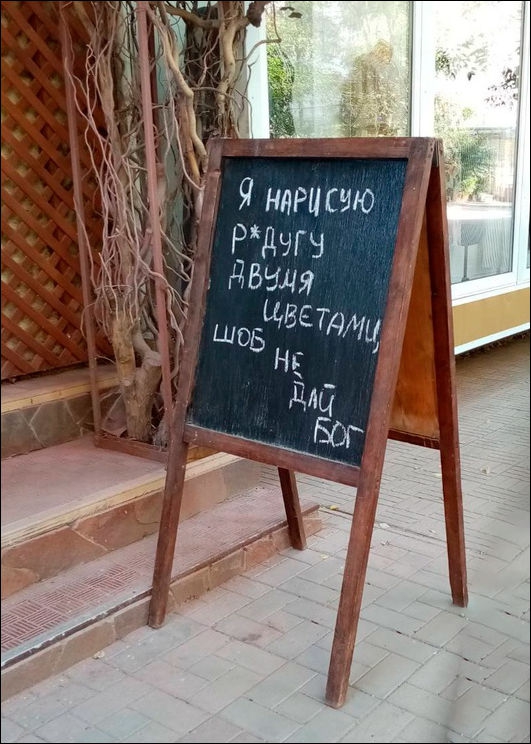 Я НАРИСУЮ
Р*ДУГУ
ДВУМЯ
ЦВЕТАМИ,
ШОБ НЕ
ДАЙ
БОГ